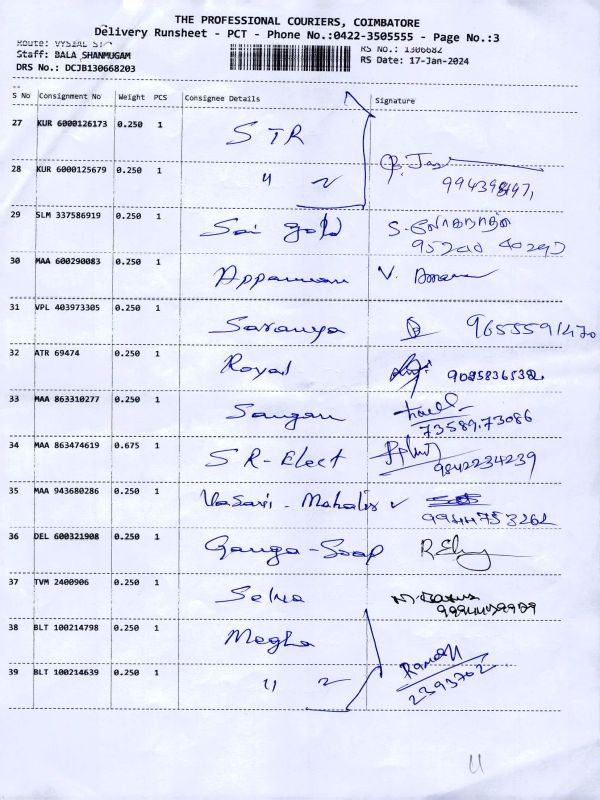 THE PROFESSIONAL COURIERS, COIMBATORE
Delivery Runsheet - PCT - Phone No.:0422-3505555 - Page No.:3
Route: RS No.: 1306682
Staff: BALA SHANMUGAM RS Date: 17-Jan-2024
DRS No.: DCJB130668203
S No Consignment No Weight PCS Consignee Details Signature
27 KUR 6000126173 0.250 1 STR
28 KUR 6000125679 0.250 1 "
29 SLM 337586919 0.250 1 Sai gold
30 MAA 600290083 0.250 1 V.
31 VPL 403973305 0.250 1 Saranya 9655591470
32 ATR 69474 0.250 1 Royal
33 MAA 863310277 0.250 1 73589.73086
34 MAA 863474619 0.675 1 SR-Elect 9842234239
35 MAA 943680286 0.250 1 Vasavi - 9944753262
36 DEL 600321908 0.250 1 Ganga-Soap
37 TVM 2400906 0.250 1 Selva
38 BLT 100214798 0.250 1 Megha
39 BLT 100214639 0.250 1 " 2393702